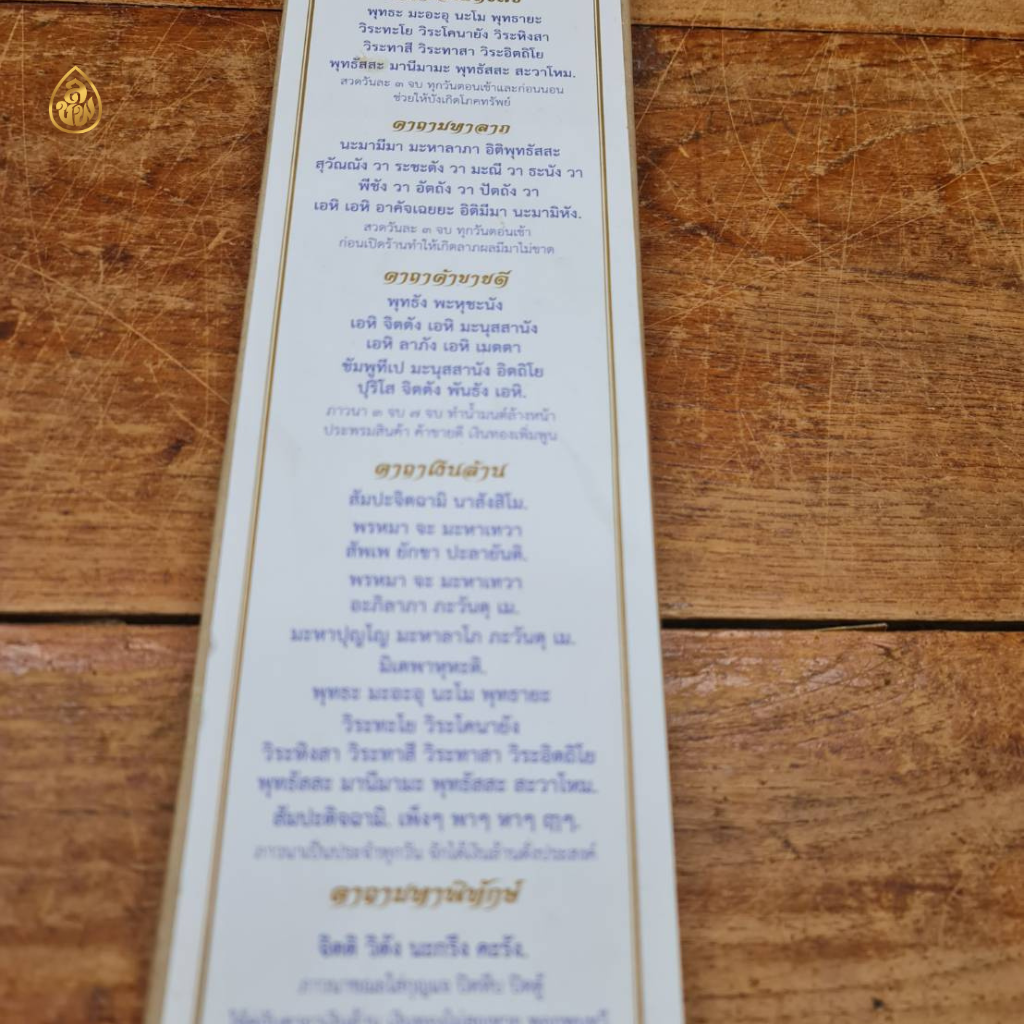 พุทธะ มะอะอุ นะโม พุทธายะ
วิระทะโย วิระโคนายัง วิระหิงสา
วิระทาสี วิระทาสา วิระอิตถิโย
พุทธัสสะ มานีมามะ พุทธัสสะ สะวาโหม.
สวดวันละ ๓ จบ ทุกวันตอนเช้าและก่อนนอน
ช่วยให้บังเกิดโภคทรัพย์
ลีซน
คาถามหาลาภ
นะมามีมา มะหาลาภา อิติพุทธัสสะ
สุวัณณัง วา ระชะตัง วา มะณี วา ธะนัง วา
พีชัง วา อัตถัง วา ปัตถัง วา
เอหิ เอหิ อาคัจเฉยยะ อิติมีมา นะมามิหัง.
สวดวันละ ๓ จบ ทุกวันตอนเช้า
ก่อนเปิดร้านทำให้เกิดลาภผลมีมาไม่ขาด
คาถาค้าขายดี
พุทธัง พะหุชะนัง
เอหิ จิตตัง เอหิ มะนุสสานัง
เอหิ ลาภัง เอหิ เมตตา
ชัมพูทีเป มะนุสสานัง อิตถิโย
ปุริโส จิตตัง พันธัง เอหิ.
ภาวนา ๓ จบ ๗ จบ ทำน้ำมนต์ล้างหน้า
ประพรมสินค้า ค้าขายดี เงินทองเพิ่มพูน
คาถาเงินล้าน
สัมปะจิตฉามิ นาสังสิโม.
พรหมา จะ มะหาเทวา
สัพเพ ยักขา ปะลายันติ.
พรหมา จะ มะหาเทวา
อะภิลาภา ภะวันตุ เม.
มะหาปุญโญ มะหาลาโภ ภะวันตุ เม.
มิเตพาหุหะติ.
พุทธะ มะอะอุ นะโม พุทธายะ
วิระทะโย วิระโคนายัง
วิระหิงสา วิระทาสี วิระทาสา วิระอิตถิโย
พุทธัสสะ มานีมามะ พุทธัสสะ สะวาโหม.
สัมปะติจฉามิ. เพ็งๆ พาๆ หาๆ ฤๅๆ.
ภาวนาเป็นประจำทุกวัน จักได้เงินล้านดั่งประสงค์
คาถามหาพิทักษ์
จิตติ วิตัง นะกรึง คะรัง.
ภาวนาขณะใส่กุญแจ ปิดหีบ ปิดตู้